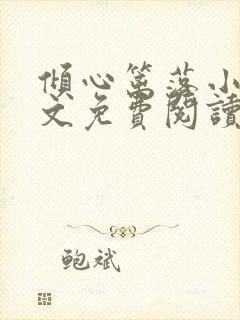 傾心篱落小
文免費閱讀
鲍斌